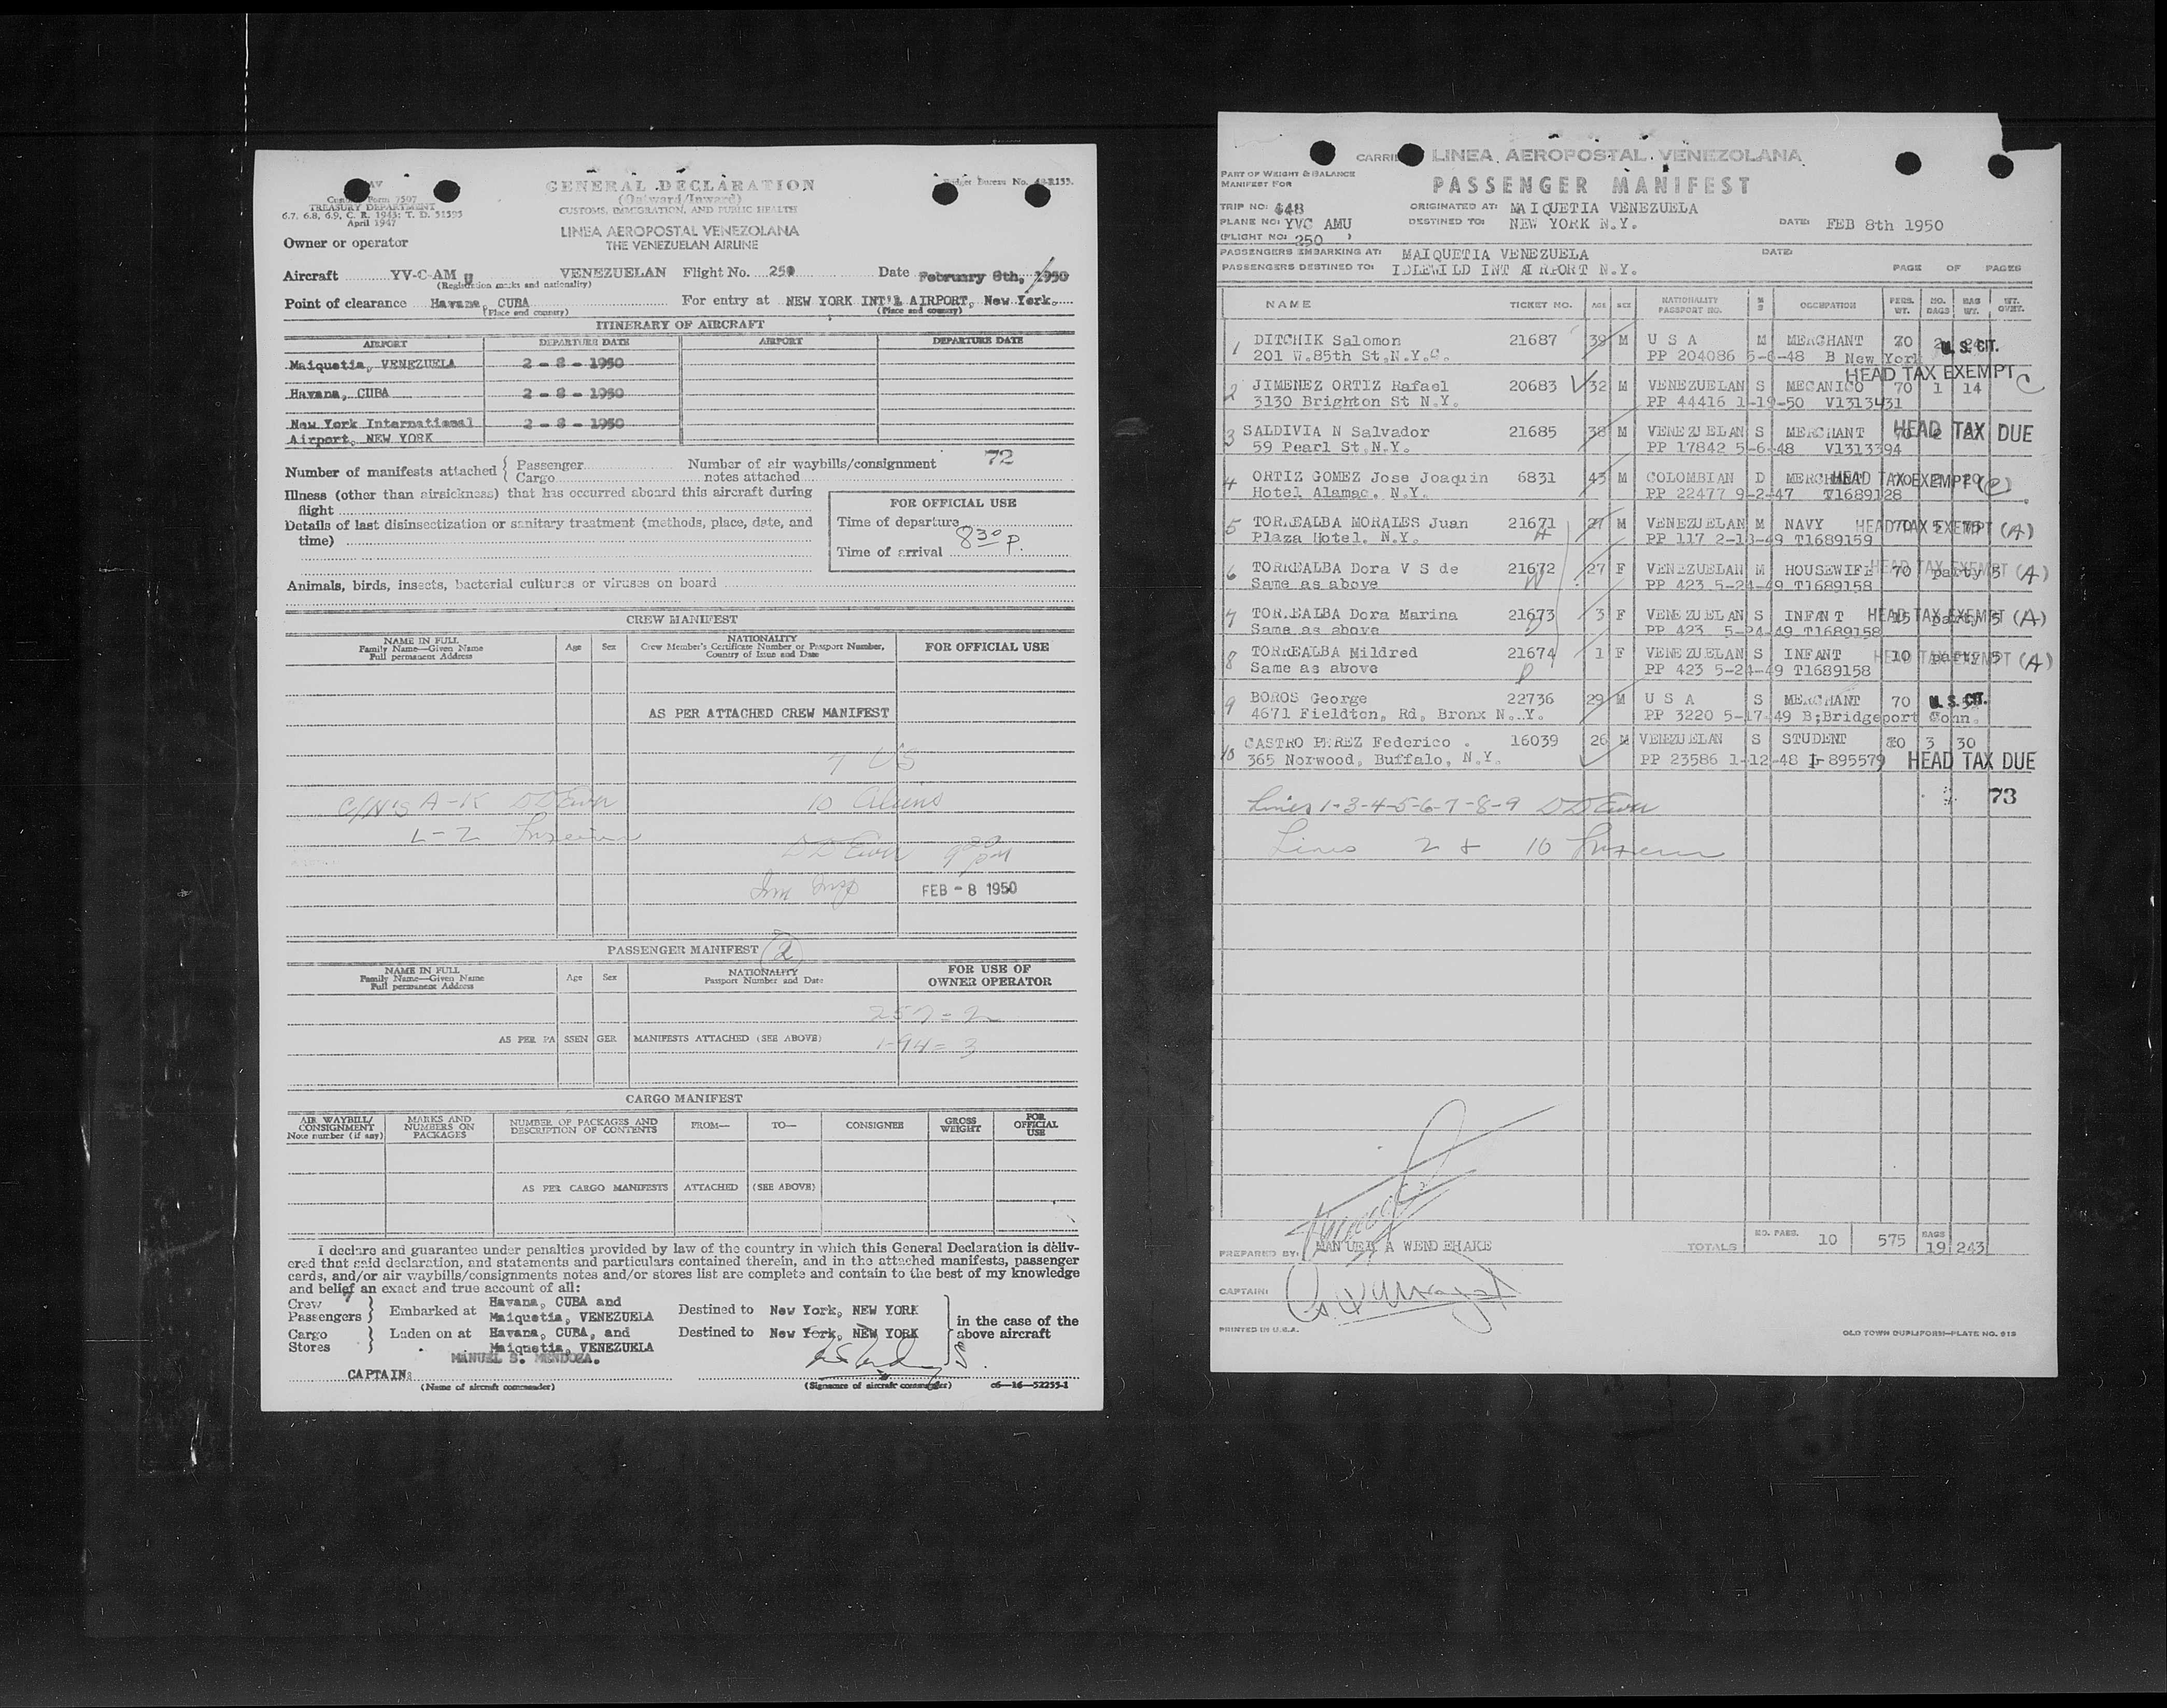 GENERAL DECLARATION
(Outward/Inward)
CUSTOMS, IMMIGRATION, AND PUBLIC HEALTH
Form 7507
TREASURY DEPARTMENT
6.7, 6.8, 6.9, C. R. 1943; T. D. 51595
April 1947
LINEA AEROPOSTAL VENEZOLANA
THE VENEZUELAN AIRLINE
Owner or operator
Aircraft YV-C-AM U VENEZUELAN Flight No. 250 Date February 8th, 1950
(Registration marks and nationality)
Point of clearance Havana, CUBA For entry at NEW YORK INT'L AIRPORT, New York.
(Place and country) (Place and country)
ITINERARY OF AIRCRAFT
AIRPORT DEPARTURE DATE AIRPORT DEPARTURE DATE
Maiquetia, VENEZUELA 2 - 8 - 1950
Havana, CUBA 2 - 8 - 1950
New York International 2 - 8 - 1950
Airport, NEW YORK
Number of manifests attached { Passenger Number of air waybills/consignment 72
Cargo notes attached
Illness (other than airsickness) that has occurred aboard this aircraft during
flight
Details of last disinsectization or sanitary treatment (methods, place, date, and
time)
FOR OFFICIAL USE
Time of departure
Time of arrival 8 30 P.
Animals, birds, insects, bacterial cultures or viruses on board
CREW MANIFEST
NAME IN FULL Age Sex NATIONALITY FOR OFFICIAL USE
Family Name—Given Name Crew Member's Certificate Number or Passport Number,
Full permanent Address Country of Issue and Date
AS PER ATTACHED CREW MANIFEST
7 US
C/N's A-K DD Ewer 10 Aliens
L-Z
DD Ewer 9 20 pm
Im Insp FEB - 8 1950
PASSENGER MANIFEST 2
NAME IN FULL Age Sex NATIONALITY FOR USE OF
Family Name—Given Name Passport Number and Date OWNER OPERATOR
Full permanent Address
257 = 2
AS PER PASSENGER MANIFESTS ATTACHED (SEE ABOVE) I-94 = 3
CARGO MANIFEST
AIR WAYBILL/ MARKS AND NUMBER OF PACKAGES AND FROM— TO— CONSIGNEE GROSS FOR
CONSIGNMENT NUMBERS ON DESCRIPTION OF CONTENTS WEIGHT OFFICIAL
Note number (if any) PACKAGES USE
AS PER CARGO MANIFESTS ATTACHED (SEE ABOVE)
I declare and guarantee under penalties provided by law of the country in which this General Declaration is deliv-
ered that said declaration, and statements and particulars contained therein, and in the attached manifests, passenger
cards, and/or air waybills/consignments notes and/or stores list are complete and contain to the best of my knowledge
and belief an exact and true account of all:
Crew 7 Havana, CUBA and
Passengers } Embarked at Maiquetia, VENEZUELA Destined to New York, NEW YORK
in the case of the
Cargo } Laden on at Havana, CUBA, and Destined to New York, NEW YORK above aircraft
Stores Maiquetia, VENEZUELA
MANUEL S. MENDOZA.
CAPTAIN:
(Name of aircraft commander) (Signature of aircraft commander) c6—16—52255-1
CARRIER LINEA AEROPOSTAL VENEZOLANA
PART OF WEIGHT & BALANCE
MANIFEST FOR
PASSENGER MANIFEST
TRIP NO: 448 ORIGINATED AT: MAIQUETIA VENEZUELA
PLANE NO: YVC AMU DESTINED TO: NEW YORK N.Y. DATE: FEB 8th 1950
(FLIGHT NO: 250 )
PASSENGERS EMBARKING AT: MAIQUETIA VENEZUELA DATE:
PASSENGERS DESTINED TO: IDLEWILD INT AIRPORT N.Y. PAGE OF PAGES
NAME TICKET NO. AGE SEX NATIONALITY PASSPORT NO. M S OCCUPATION PERS. WT. NO. BAGS BAG WT. WT. OVRT.
1 DITCHIK Salomon 21687 39 M U S A M MERCHANT 70 2 U.S. CIT.
201 W.85th St,N.Y.C. PP 204086 5-6-48 B New York
HEAD TAX EXEMPT C
2 JIMENEZ ORTIZ Rafael 20683 32 M VENEZUELAN S MECANICO 70 1 14
3130 Brighton St N.Y. PP 44416 1-19-50 V1313431
3 SALDIVIA N Salvador 21685 38 M VENEZUELAN S MERCHANT HEAD TAX DUE
59 Pearl St,N.Y. PP 17842 5-6-48 V1313394
4 ORTIZ GOMEZ Jose Joaquin 6831 43 M COLOMBIAN D MERCHANT HEAD TAX EXEMPT (C)
Hotel Alamac. N.Y. PP 22477 9-2-47 T1689128
5 TORREALBA MORALES Juan 21671 27 M VENEZUELAN M NAVY HEAD TAX EXEMPT (A)
Plaza Hotel. N.Y. H PP 117 2-18-49 T1689159
6 TORREALBA Dora V S de 21672 27 F VENEZUELAN M HOUSEWIFE 70 party 5 HEAD TAX EXEMPT (A)
Same as above W PP 423 5-24-49 T1689158
7 TORREALBA Dora Marina 21673 3 F VENEZUELAN S INFANT 15 party 5 HEAD TAX EXEMPT (A)
Same as above D PP 423 5-24-49 T1689158
8 TORREALBA Mildred 21674 1 F VENEZUELAN S INFANT 10 party 5 HEAD TAX EXEMPT (A)
Same as above D PP 423 5-24-49 T1689158
9 BOROS George 22736 29 M U S A S MERCHANT 70 U.S. CIT.
4671 Fieldton, Rd, Bronx N.Y. PP 3220 5-17-49 B;Bridgeport Conn.
10 CASTRO PEREZ Federico 16039 26 M VENEZUELAN S STUDENT 80 3 30
365 Norwood, Buffalo, N.Y. PP 23586 1-12-48 I-895579 HEAD TAX DUE
Lines 1-3-4-5-6-7-8-9 DD Ewer 73
Lines 2 & 10
PREPARED BY: MANUEL A WENDEHAKE TOTALS NO. PASS. 10 575 BAGS 19 243
CAPTAIN:
PRINTED IN U.S.A. OLD TOWN DUPLIFORM—PLATE NO. 615